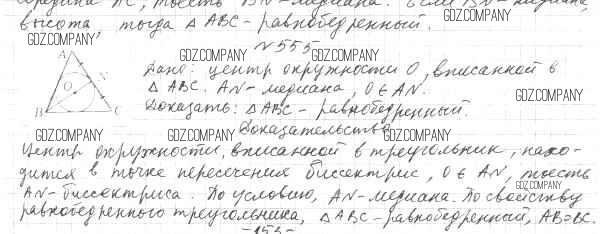 середина AC, то есть BN-медиана. Если BN-медиана,
высота, тогда △ ABC - равнобедренный.
GDZ.COMPANY
GDZ.COMPANY
GDZ.COMPANY
№555
A
N
O
B
C
Дано: центр окружности O, вписанной в
△ ABC. AN-медиана, O ∈ AN.
GDZ.COMPANY
Доказать: △ ABC - равнобедренный.
GDZ.COMPANY
GDZ.COMPANY
GDZ.COMPANY
Доказательство
Центр окружности, вписанной в треугольник, нахо-
дится в точке пересечения биссектрис, O ∈ AN, то есть
GDZ.COMPANY
AN-биссектриса. По условию, AN-медиана. По свойству
равнобедренного треугольника, △ ABC - равнобедренный, AB=BC.